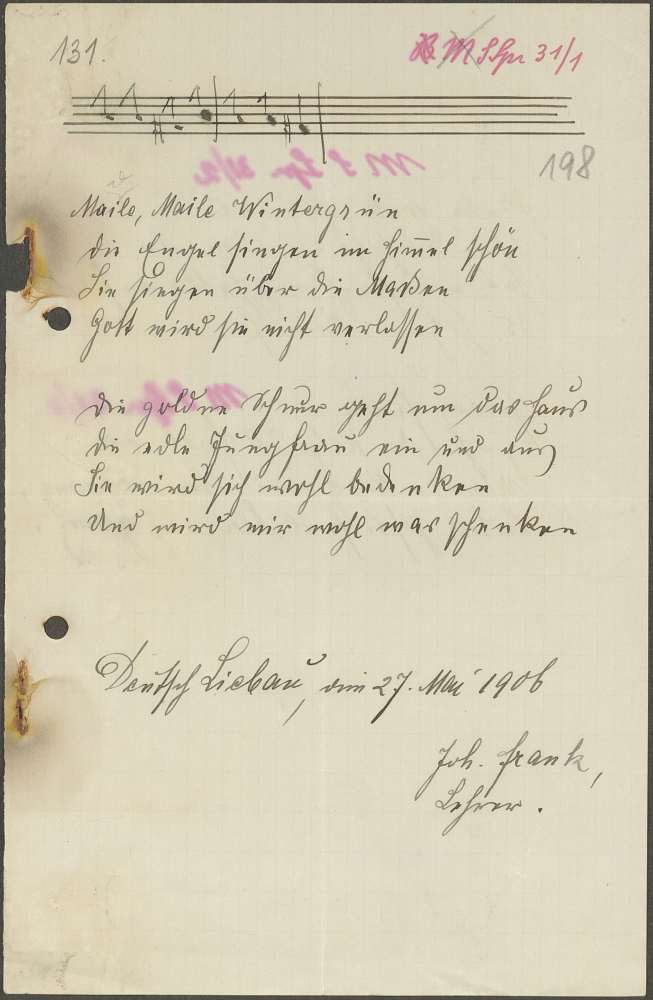 131.
M S Spr 31/1
198
Maile, Maile Wintergrün
die Engel singen im Himmel schön
Sie singen über die Maßen
Gott wird sie nicht verlassen
Die goldne Schnur geht um das Haus
die edle Jungfrau ein und aus
Sie wird sich wohl bedenken
Und wird mir wohl was schenken
Deutsch Liebau, am 27. Mai 1906
Joh. Frank,
Lehrer.